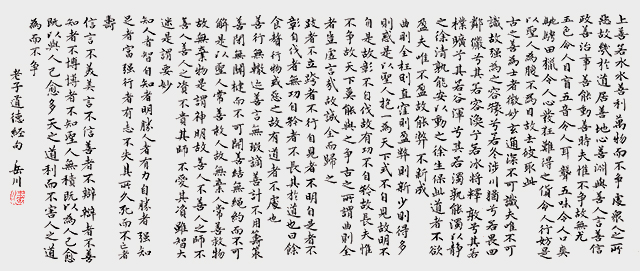 上善若水水善利萬物而不爭處眾人之所
惡故幾於道居善地心善淵與善人言善信
政善治事善能動善時夫唯不爭故無尤
五色令人目盲五音令人耳聾五味令人口爽
馳騁田獵令人心發狂難得之貨令人行妨是
以聖人為腹不為目故去彼取此
古之善為士者微妙玄通深不可識夫唯不可
識故強為之容豫兮若冬涉川猶兮若畏四
鄰儼兮其若容渙兮若冰將釋敦兮其若
樸曠兮其若谷渾兮其若濁孰能濁以靜
之徐清孰能安以動之徐生保此道者不欲
盈夫唯不盈故能弊不新成
曲則全枉則直窪則盈弊則新少則得多
則惑是以聖人抱一為天下式不自見故明不
自是故彰不自伐故有功不自矜故長夫惟
不爭故天下莫能與之爭古之所謂曲則全
者豈虛言哉故誠全而歸之
跂者不立跨者不行自見者不明自是者不
彰自伐者無功自矜者不長其於道也曰餘
食贅行物或惡之故有道者不處也
善行無轍迹善言無瑕謫善計不用籌策
善閉無關楗而不可開善結無繩約而不可
解是以聖人常善救人故無棄人常善救物
故無棄物是謂神明故善人不善人之師不
善人善人之資不貴其師不愛其資雖智大
迷是謂要妙
知人者智自知者明勝人者有力自勝者強知
足者富強行者有志不失其所久死而不亡者
壽
信言不美美言不信善者不辯辯者不善
知者不博博者不知聖人無積既以為人己愈
既以與人己愈多天之道利而不害人之道
為而不爭
老子道德經句 岳川